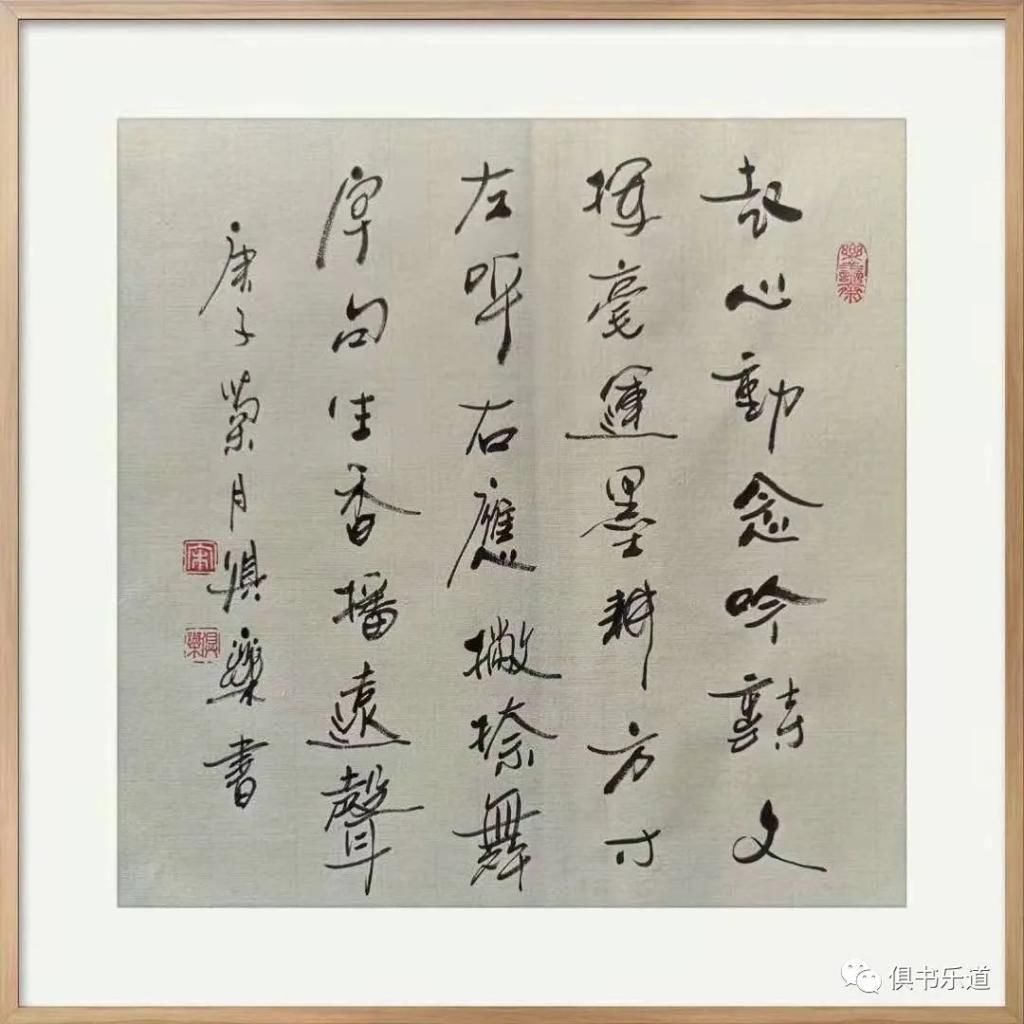 起心動念吟詩文
揮毫運墨耕方寸
左呼右應撇捺舞
字句生香播遠聲
庚子菊月俱樂書
宋
俱樂
俱书乐道